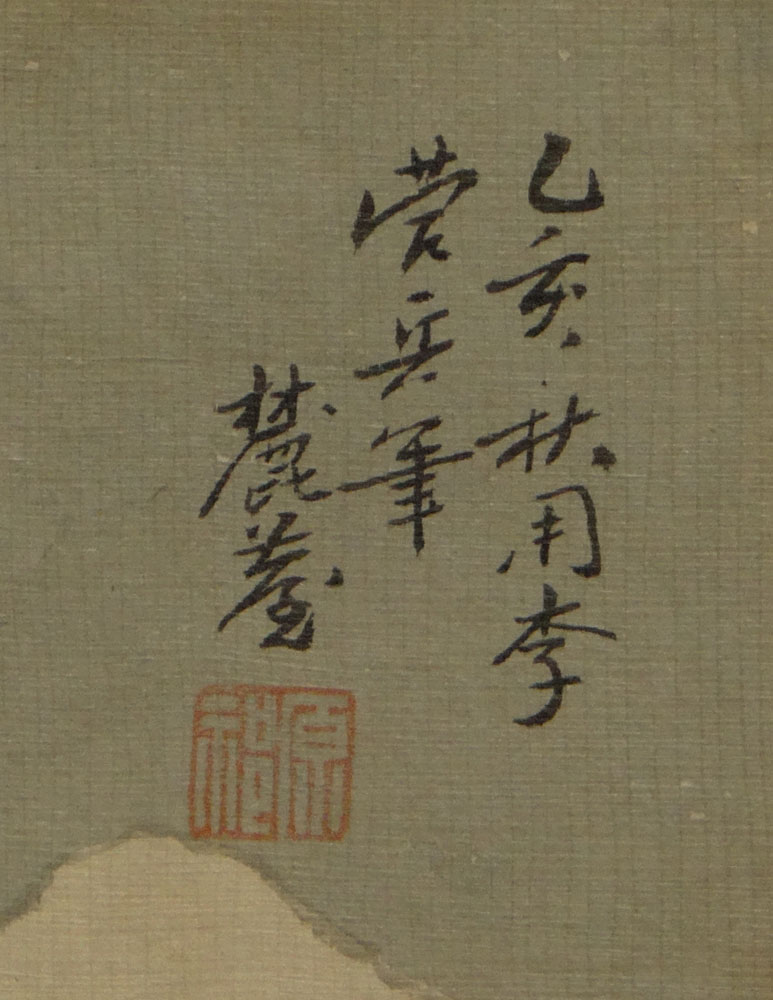 乙亥秋用李
营丘筆
麓臺
原祁